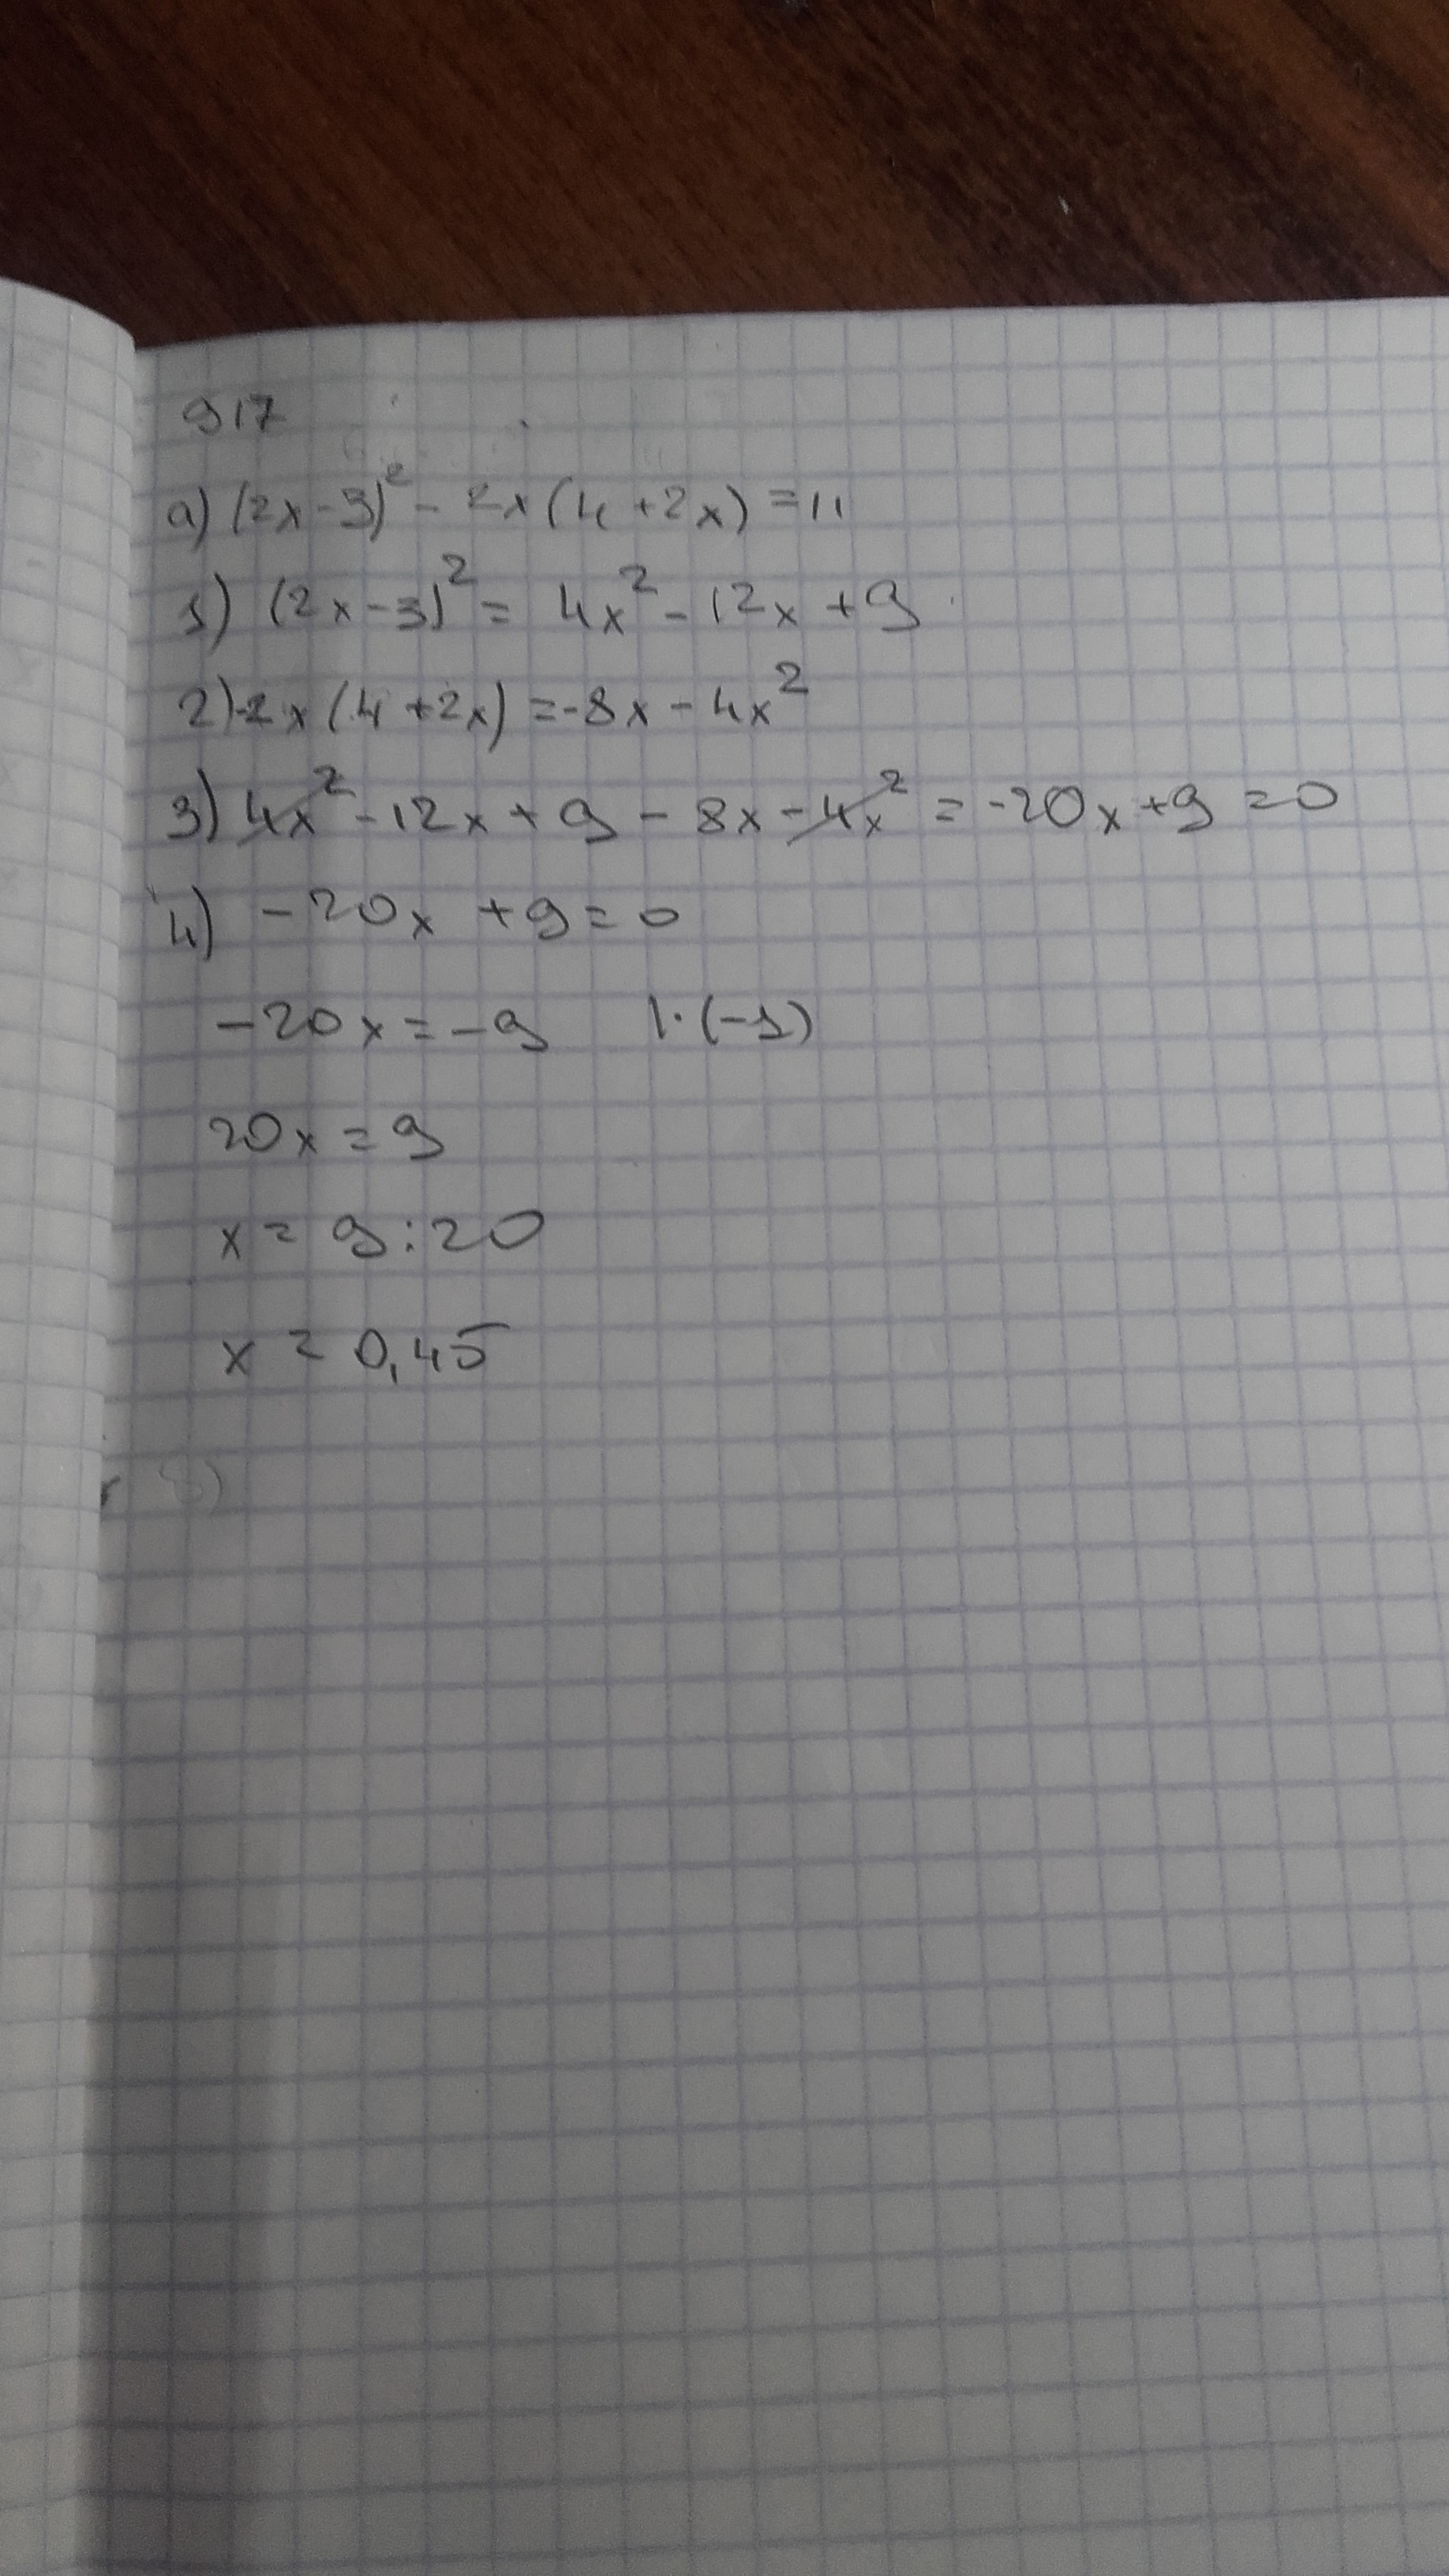 917
а) (2x-3)² - 2x(4+2x) = 11
1) (2x-3)² = 4x² - 12x + 9
2) -2x(4+2x) = -8x - 4x²
3) 4x² - 12x + 9 - 8x - 4x² = -20x + 9 = 0
4) -20x + 9 = 0
-20x = -9 |·(-1)
20x = 9
x = 9:20
x = 0,45